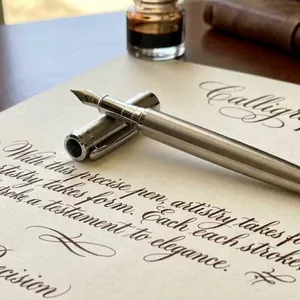 Calligr
With its precise pen, artistry takes fo
artistry takes form. Each each stroke
a testament to elegance.
Precision